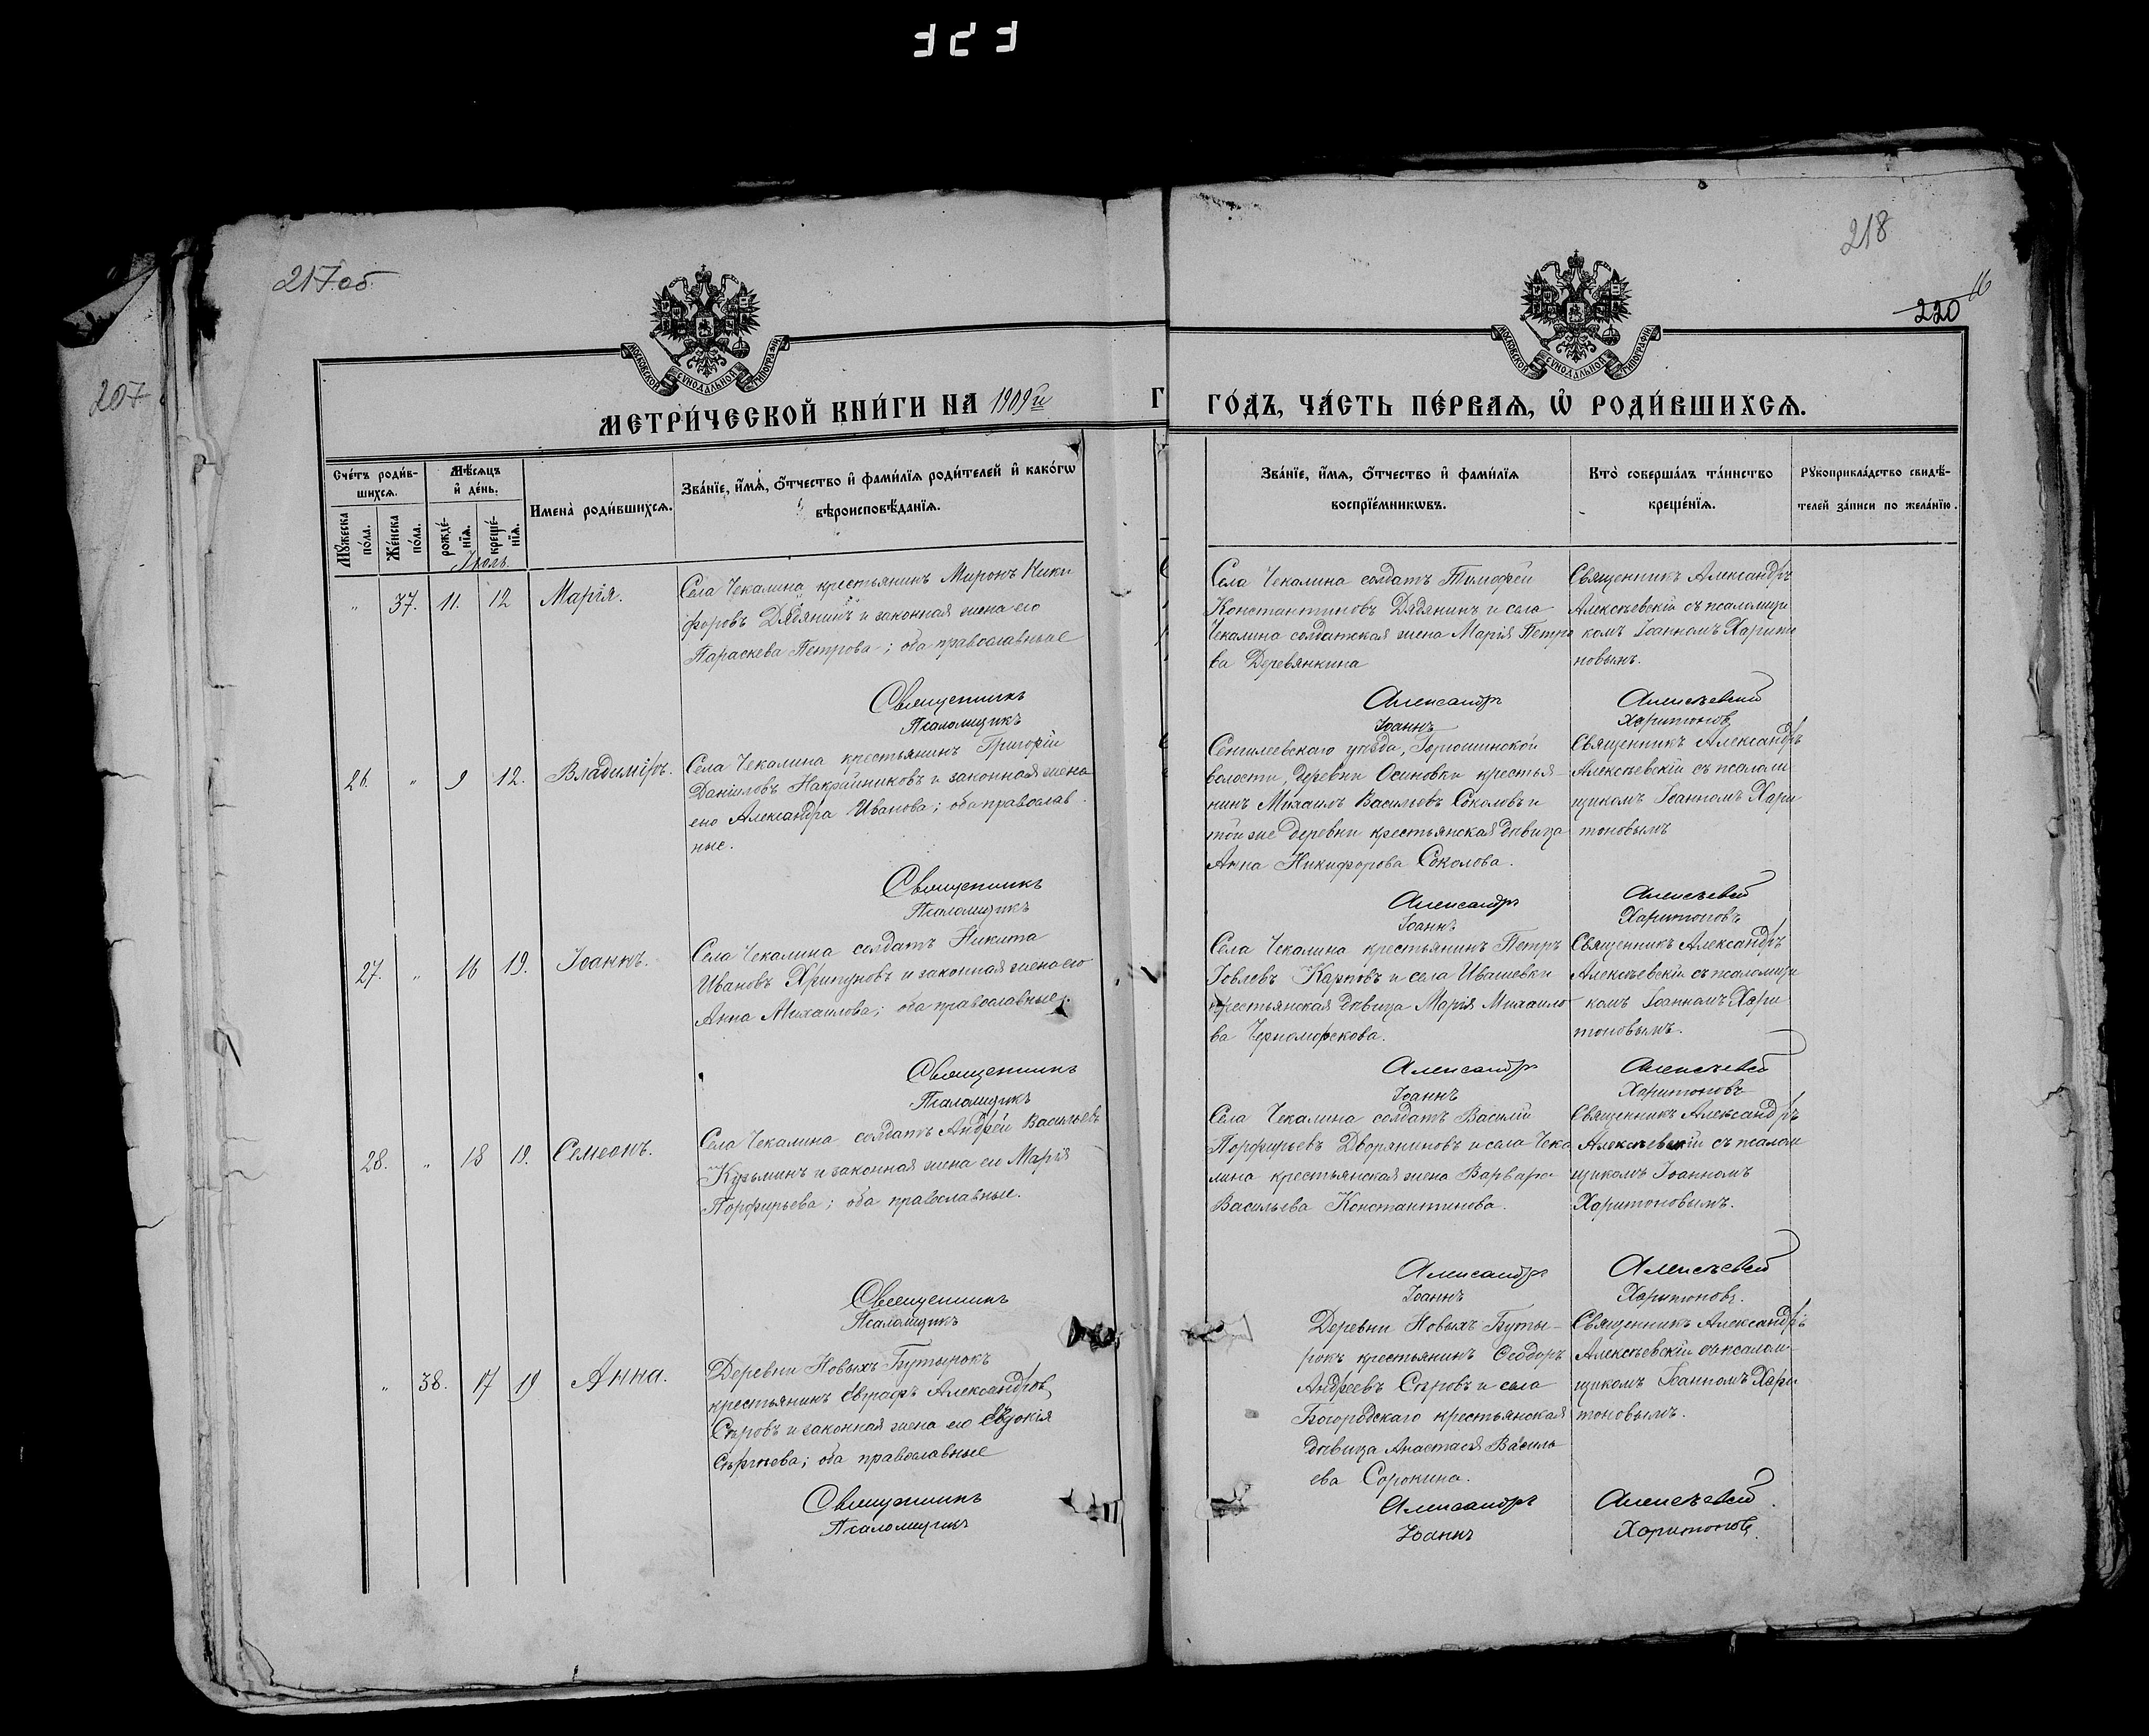 323
217 об.
207
МОСКОВСКОЙ СѴНОДАЛЬНОЙ ТИПОГРАФІИ
МЕТРИ́ЧЕСКОЙ КНИ́ГИ НА 1909 й
Сче́тъ роди́в-
шихся.
Мѣ́сяцъ
и҆ де́нь.
Имена̀ роди́вшихся.
Зва́нїе, и҆́мя, ѻ҆́тчество и҆ фами́лїя роди́телей и҆ како́гѡ
вѣроисповѣ́данїя.
Мꙋ́жеска
по́ла.
Же́нска
по́ла.
рожде́-
нїя.
креще́-
нїя.
Іюль.
" 37. 11. 12 Марія.
Села Чекалина крестьянинъ Миронъ Ники
форовъ Дядянинъ и законная жена его
Параскева Петрова; оба православные
Священникъ
Псаломщикъ
26. " 9 12. Владиміръ.
Села Чекалина крестьянинъ Григорій
Даніиловъ Накрайниковъ и законная жена
его Александра Иванова; оба православ
ные.
Священникъ
Псаломщикъ
27. " 16 19. Іоаннъ.
Села Чекалина солдатъ Никита
Ивановъ Хрипуновъ и законная жена его
Анна Михаилова; оба православные.
Священникъ
Псаломщикъ
28. " 18 19. Семеонъ.
Села Чекалина солдатъ Андрей Васильевъ
Кузьминъ и законная жена его Марія
Порфирьева; оба православные.
Священникъ
Псаломщикъ
" 38. 17 19 Анна.
Деревни Новыхъ Бутырокъ
крестьянинъ Евграфъ Александровъ
Съровъ и законная жена его Евдокія
Сергѣева; оба православные
Священникъ
Псаломщикъ
218
220 16
МОСКОВСКОЙ СѴНОДАЛЬНОЙ ТИПОГРАФІИ
Г ГО́ДЪ, ЧА́СТЬ ПЕ́РВАЯ, Ѡ҆ РОДИ́ВШИХСЯ.
Зва́нїе, и҆́мя, ѻ҆́тчество и҆ фами́лїя
воспрїе́мникѡвъ.
Кто̀ соверша́лъ та́инство
креще́нїя.
Рꙋкоприкла́дство свидѣ́-
телей за́писи по жела́нїю.
Села Чекалина солдатъ Тимофей
Константиновъ Дядянинъ и села
Чекалина солдатская жена Марія Петро
ва Деревянкина
Священникъ Александръ
Алексѣевскій съ псаломщи
комъ Іоанномъ Харито
новымъ.
Александръ Алексѣевскій
Іоаннъ Харитоновъ
Сенгилеевскаго уѣзда, Горюшинской
волости, деревни Осиновки крестья-
нинъ Михаилъ Васильевъ Соколовъ и
той же деревни крестьянская дѣвица
Анна Никифорова Соколова.
Священникъ Александръ
Алексѣевскій съ псалом
щикомъ Іоанномъ Хари
тоновымъ
Александръ Алексѣевскій
Іоаннъ Харитоновъ
Села Чекалина крестьянинъ Петръ
Іовлевъ Карповъ и села Ивашевки
крестьянская дѣвица Марія Михаило
ва Черноморскова.
Священникъ Александръ
Алексѣевскій съ псаломщи
комъ Іоанномъ Хари
тоновымъ.
Александръ Алексѣевскій
Іоаннъ Харитоновъ
Села Чекалина солдатъ Василій
Порфирьевъ Дворяниновъ и села Чека
лина крестьянская жена Варвара
Васильева Константинова.
Священникъ Александръ
Алексѣевскій съ псалом
щикомъ Іоанномъ
Харитоновымъ.
Александръ Алексѣевскій
Іоаннъ Харитоновъ.
Деревни Новыхъ Буты-
рокъ крестьянинъ Ѳеодоръ
Андреевъ Съровъ и села
Богородскаго крестьянская
дѣвица Анастасія Василь
ева Сорокина.
Священникъ Александръ
Алексѣевскій съ псалом-
щикомъ Іоанномъ Хари
тоновымъ.
Александръ Алексѣевскій.
Іоаннъ Харитоновъ.